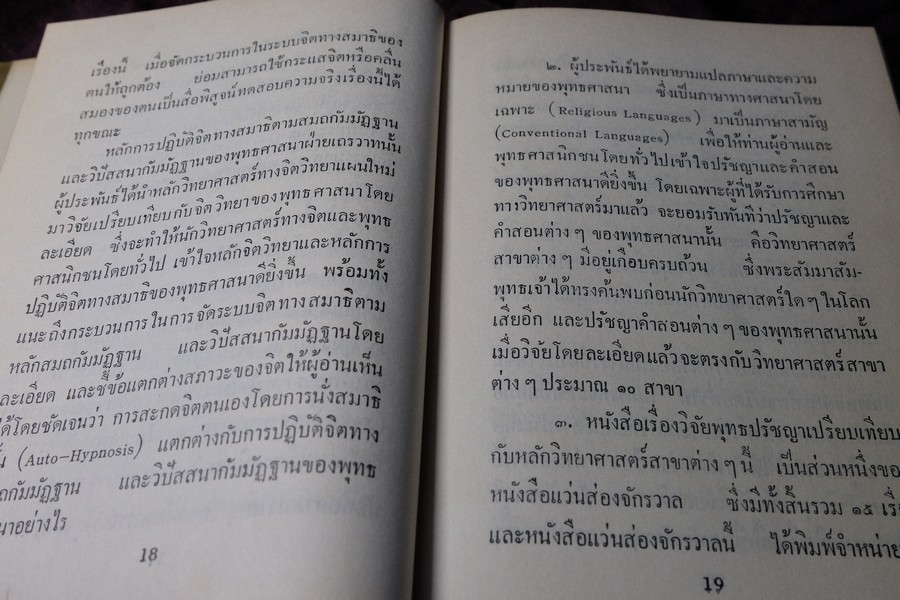 เรื่องนี้ เมื่อจัดกระบวนการในระบบจิตทางสมาธิของ
ตนให้ถูกต้อง ย่อมสามารถใช้กระแสจิตหรือคลื่น
สมองของตนเป็นสื่อพิสูจน์ทดสอบความจริงเรื่องนี้ได้
ทุกขณะ
หลักการปฏิบัติจิตทางสมาธิตามสมถกัมมัฏฐาน
และวิปัสสนากัมมัฏฐานของพุทธศาสนาฝ่ายเถรวาทนั้น
ผู้ประพันธ์ได้นำหลักวิทยาศาสตร์ทางจิตวิทยาแผนใหม่
มาวิจัยเปรียบเทียบกับจิตวิทยาของพุทธศาสนาโดย
ละเอียด ซึ่งจะทำให้นักวิทยาศาสตร์ทางจิตและพุทธ
ศาสนิกชนโดยทั่วไป เข้าใจหลักจิตวิทยาและหลักการ
ปฏิบัติจิตทางสมาธิของพุทธศาสนาดียิ่งขึ้น พร้อมทั้ง
แนะถึงกระบวนการในการจัดระบบจิตทางสมาธิตาม
หลักสมถกัมมัฏฐาน และวิปัสสนากัมมัฏฐานโดย
ละเอียด และชี้ข้อแตกต่างสภาวะของจิตให้ผู้อ่านเห็น
ได้โดยชัดเจนว่า การสะกดจิตตนเองโดยการนั่งสมาธิ
(Auto-Hypnosis) แตกต่างกับการปฏิบัติจิตทาง
ถกัมมัฏฐาน และวิปัสสนากัมมัฏฐานของพุทธ
นาอย่างไร
18
๒. ผู้ประพันธ์ได้พยายามแปลภาษาและความ
หมายของพุทธศาสนา ซึ่งเป็นภาษาทางศาสนาโดย
เฉพาะ (Religious Languages) มาเป็นภาษาสามัญ
(Conventional Languages) เพื่อให้ท่านผู้อ่านและ
พุทธศาสนิกชนโดยทั่วไปเข้าใจปรัชญาและคำสอน
ของพุทธศาสนาดียิ่งขึ้น โดยเฉพาะผู้ที่ได้รับการศึกษา
ทางวิทยาศาสตร์มาแล้ว จะยอมรับทันทีว่าปรัชญาและ
คำสอนต่าง ๆ ของพุทธศาสนานั้น คือวิทยาศาสตร์
สาขาต่าง ๆ มีอยู่เกือบครบถ้วน ซึ่งพระสัมมาสัม-
พุทธเจ้าได้ทรงค้นพบก่อนนักวิทยาศาสตร์ใด ๆ ในโลก
เสียอีก และปรัชญาคำสอนต่าง ๆ ของพุทธศาสนานั้น
เมื่อวิจัยโดยละเอียดแล้วจะตรงกับวิทยาศาสตร์สาขา
ต่าง ๆ ประมาณ ๑๐ สาขา
๓. หนังสือเรื่องวิจัยพุทธปรัชญาเปรียบเทียบ
กับหลักวิทยาศาสตร์สาขาต่าง ๆ นี้ เป็นส่วนหนึ่งของ
หนังสือแว่นส่องจักรวาล ซึ่งมีทั้งสิ้นรวม ๑๕ เรื่
และหนังสือแว่นส่องจักรวาลนี้ ได้พิมพ์จำหน่าย
19